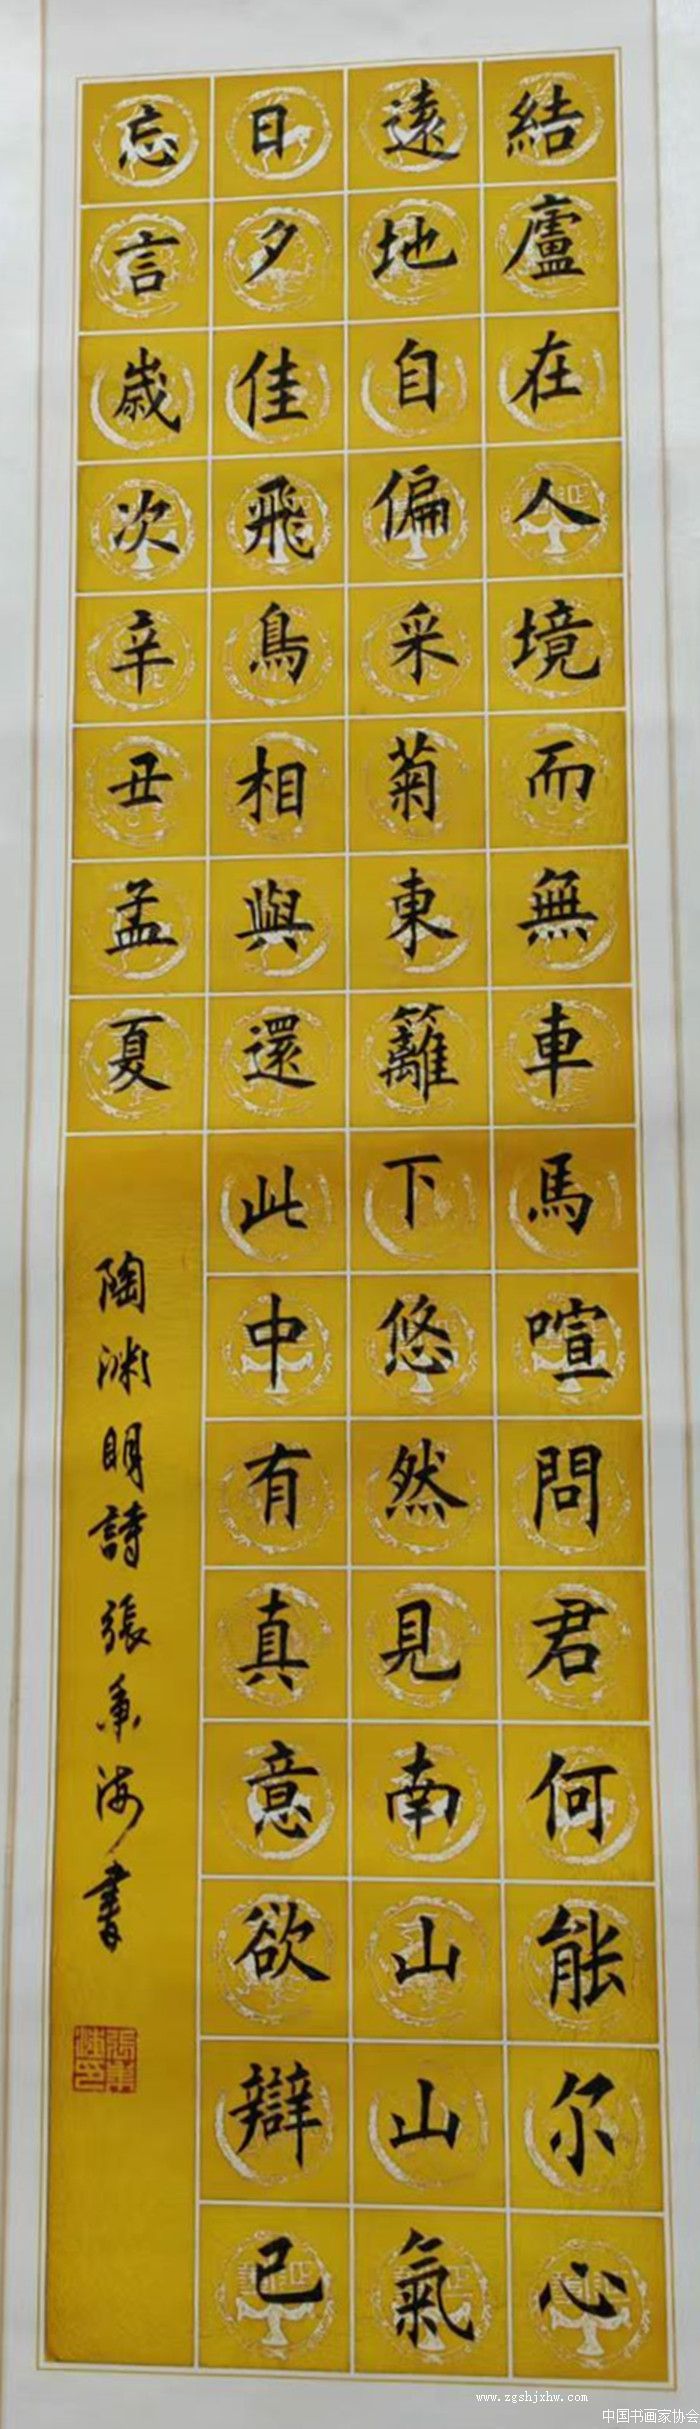 結廬在人境而無車馬喧問君何能尔心
遠地自偏采菊東籬下悠然見南山山氣
日夕佳飛鳥相與還此中有真意欲辯已
忘言歲次辛丑孟夏
陶渊明詩張秉海書
www.zgshjxhw.com
中国书画家协会